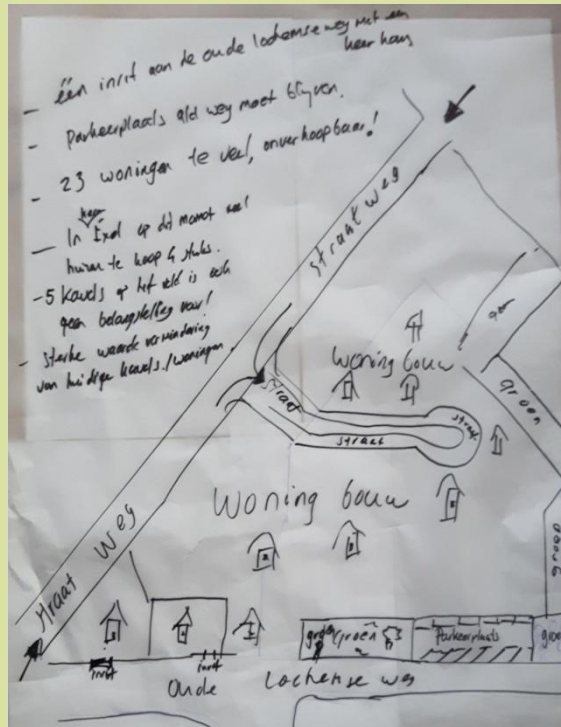 - één inrit aan de oude lochemseweg met een
heer haus
- Parkeerplaats ald weg moet blijven.
- 23 woningen te veel, onverkoopbaar!
- In Exel op dit moment veel
huizen te koop 6 stuks.
-5 kavels op het veld is ook
geen belangstelling voor!
- sterke waarde vermindering
van huidige kavels./woningen.
straatweg
Woning bouw
groen
straat
straat
straat
groen
Woning bouw
straat weg
groen
groen
Parkeerplaats
inrit
inrit
Oude Lochemse weg